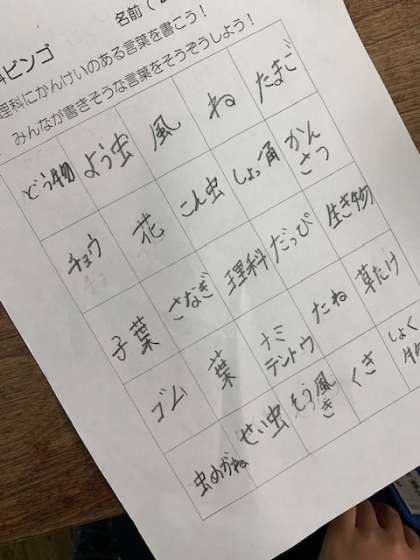 科ビンゴ 名前(
理科にかんけいのある言葉を書こう！
みんなが書きそうな言葉をそうぞうしよう！
どう物 よう虫 風 ね たまご
チョウ 花 こん虫 しょっ角 かんさつ
子葉 さなぎ 理科 だっぴ 生き物
ゴム 葉 ナミテントウ たね 草たけ
虫めがね せい虫 そう風き くき しょく